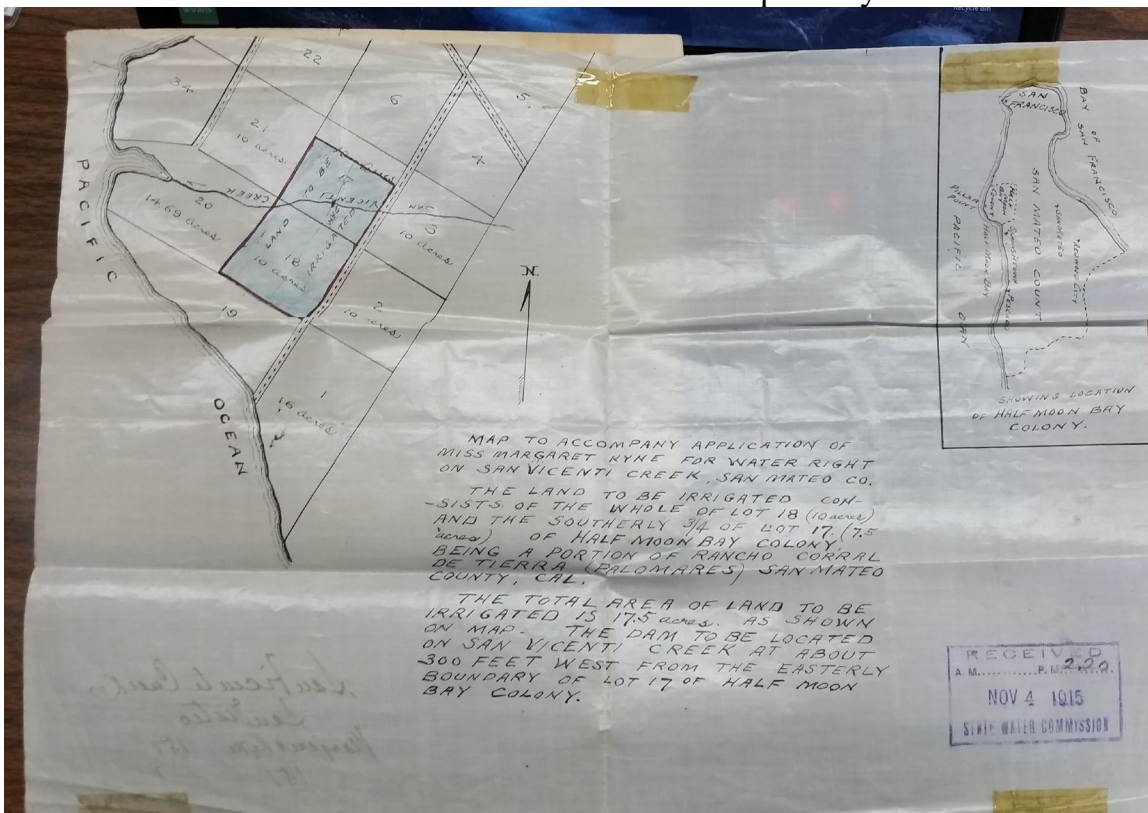 34
22
21
10 acres
6
5
4
PACIFIC
20
14.69 acres
CREEK
17
VICENTI
SAN
3
10 acres
LAND
IRRIGATED
18
10 acres
19
2
10 acres
1
16 acres
OCEAN
N
SAN
FRANCISCO
BAY OF
SAN FRANCISCO
SAN MATEO COUNT
PILLAR
POINT
HALF MOON BAY
PACIFIC
SHOWING LOCATION
OF HALF MOON BAY
COLONY.
MAP TO ACCOMPANY APPLICATION OF
MISS MARGARET KYNE FOR WATER RIGHT
ON SAN VICENTI CREEK, SAN MATEO CO.
THE LAND TO BE IRRIGATED CON-
-SISTS OF THE WHOLE OF LOT 18 (10 acres)
AND THE SOUTHERLY 3/4 OF LOT 17. (7.5
acres) OF HALF MOON BAY COLONY,
BEING A PORTION OF RANCHO CORRAL
DE TIERRA (PALOMARES) SAN MATEO
COUNTY, CAL.
THE TOTAL AREA OF LAND TO BE
IRRIGATED IS 17.5 acres. AS SHOWN
ON MAP. THE DAM TO BE LOCATED
ON SAN VICENTI CREEK AT ABOUT
300 FEET WEST FROM THE EASTERLY
BOUNDARY OF LOT 17 OF HALF MOON
BAY COLONY.
RECEIVED
A.M. P.M. 2.20
NOV 4 1915
STATE WATER COMMISSION